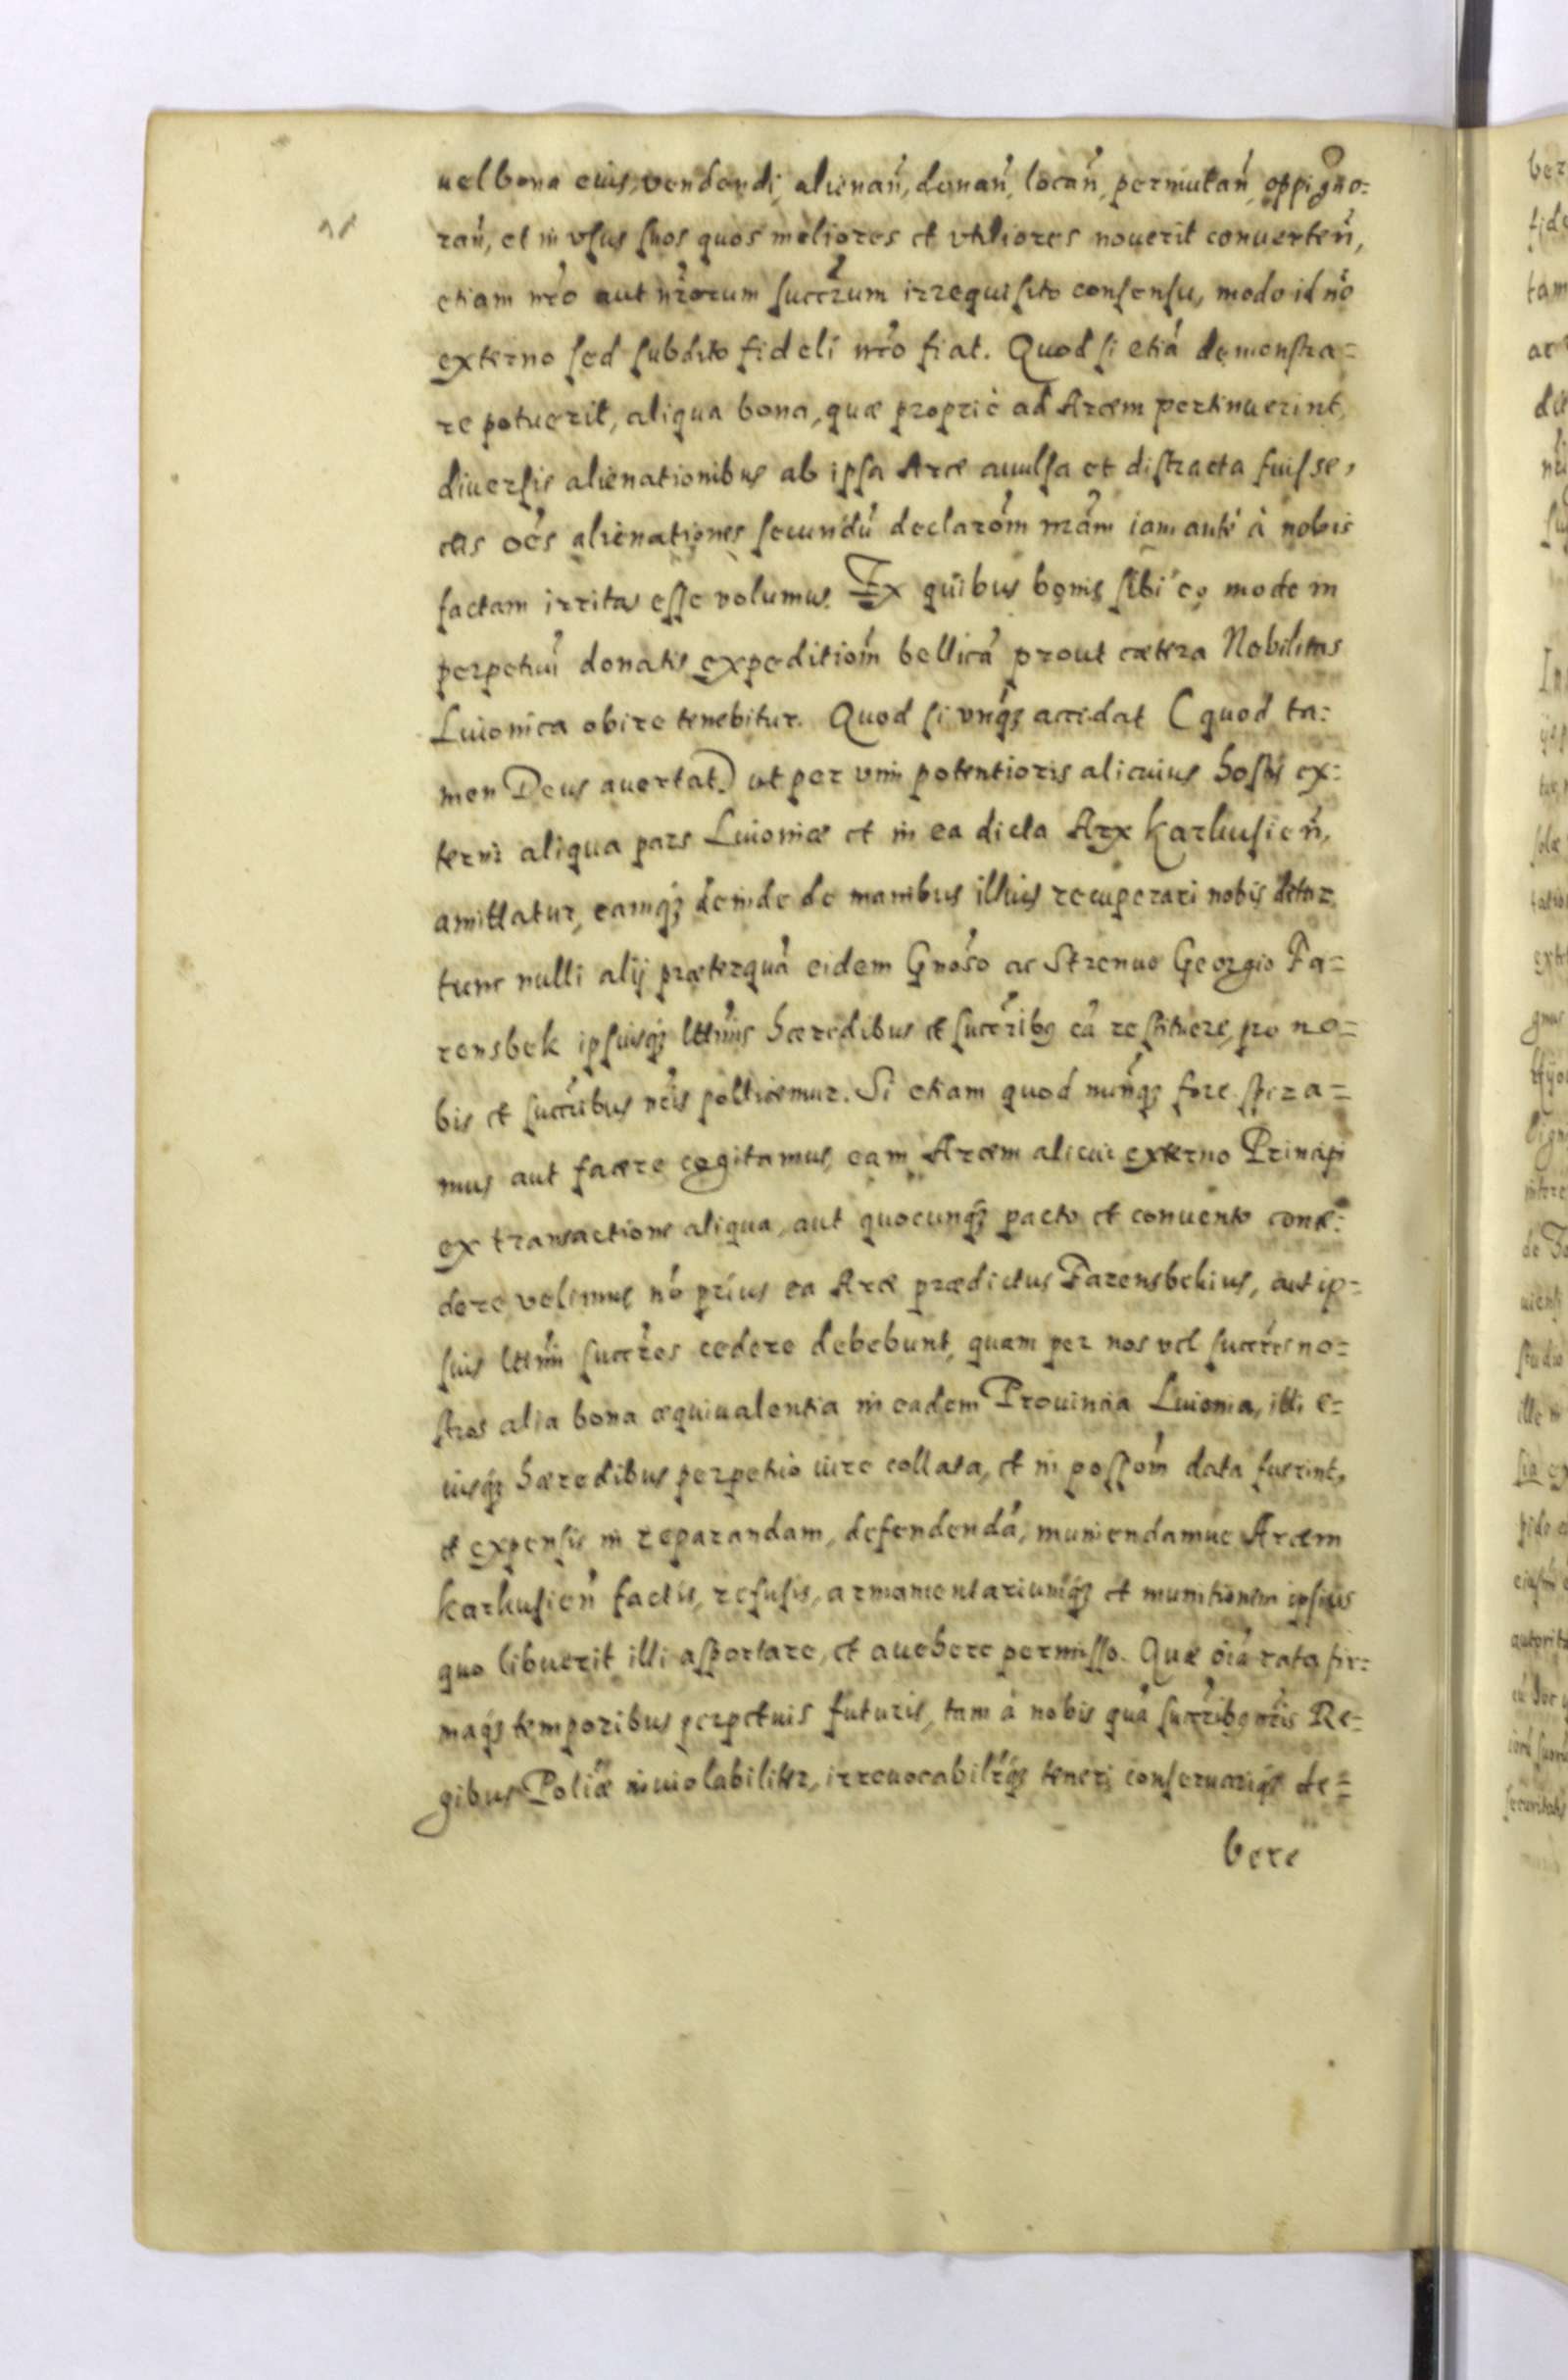 uel bona eius, vendendi, alienan̄, donan̄, locan̄, permutan̄, oppigno=
ran̄, et in vsus suos quos meliores et vtiliores nouerit conuerten̄,
etiam nr̄o aut nr̄orum succr̄um irrequisito consensu, modo id nō
externo sed subdito fideli nr̄o fiat. Quod si etiā demonstra=
re potuerit, aliqua bona, quæ propriè ad Arcem pertinuerint,
diuersis alienationibus ab ipsa Arce auulsa et distracta fuisse,
eas oēs alienationes secundū declarōm nr̄am iam antè à nobis
factam irritas esse volumus. Ex quibus bonis sibi eo modo in
perpetuū donatis expeditiōm bellicā prout cætera Nobilitas
Liuonica obire tenebitur. Quod si vnq̄ꝫ accidat (quod ta=
men Deus auertat) ut per vim potentioris alicuius hostis ex=
terni aliqua pars Liuoniæ et in ea dicta Arx Karkusien̄,
amittatur, eamqꝫ deinde de manibus illius recuperari nobis detur
tunc nulli alij præterquā eidem Gnōso ac Strenuo Georgio Fa=
rensbek ipsiusqꝫ lttīmis hæredibus et succr̄ibꝫ eā restituere, pro no=
bis et succr̄ibus nr̄is pollicemur. Si etiam quod nunq̄ꝫ fore spera=
mus aut facere cogitamus, eam Arcem alicui externo Principi
ex transactione aliqua, aut quocunqꝫ pacto et conuento conce=
dere velimus nō prius ea Arce prædictus Farensbekius, aut ip=
sius lttīmi succr̄es cedere debebunt, quam per nos vel succr̄es no=
stros alia bona æquiualentia in eadem Prouincia Liuonia, illi e=
iusqꝫ hæredibus perpetuo iure collata, et in possōm data fuerint,
et expensis in reparandam, defendendā, muniendamue Arcem
Karkusien̄ factis, refusis, armamentariumqꝫ et munitionem ipsius
quo libuerit illi asportare, et auehere permisso. Quæ ōia rata fir=
maqꝫ temporibus perpetuis futuris, tam à nobis quā succr̄ibꝫ nr̄is Re=
gibus Polīæ inuiolabiliter, irreuocabilr̄qꝫ teneri conseruariqꝫ de=
bere